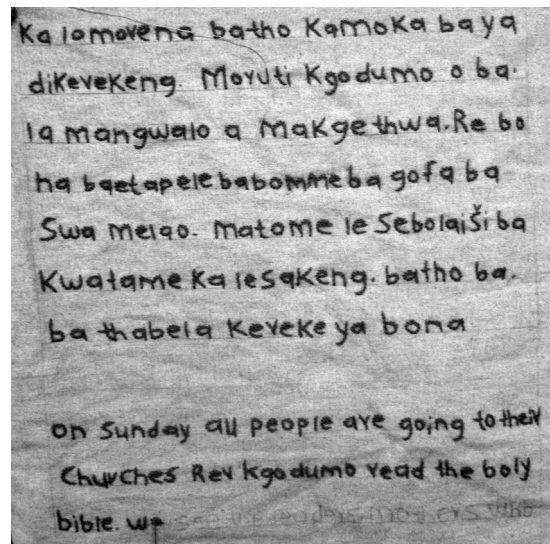 Ka lamorena batho Kamoka baya
dikerekeng. Moruti Kgodumo o ba.
la mangwalo a makgethwa. Re bo
na baetapele babomme ba gofa ba
Swa melao. matome le Sebolaiši ba
Kwatame ka lesakeng. batho ba.
ba thabela Kereke ya bona
on Sunday all people are going to their
Churches Rev kgodumo read the boly
bible. we see leaders mothers who